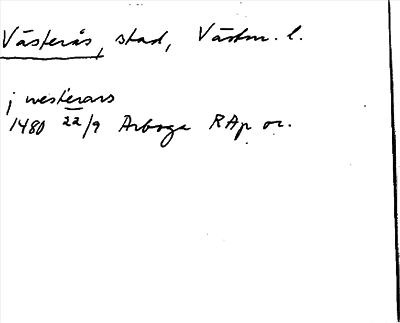 Västerås, stad, Västm. l.
j westerars
1480 22/9 Arboga RAp or.